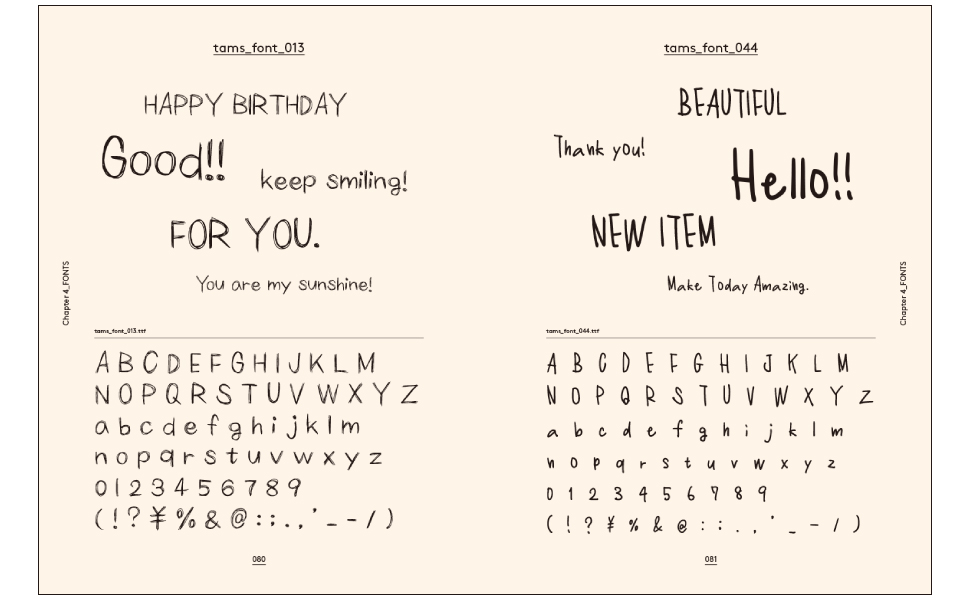 tams_font_013
HAPPY BIRTHDAY
Good!!
keep smiling!
FOR YOU.
You are my sunshine!
Chapter 4_FONTS
tams_font_013.ttf
A B C D E F G H I J K L M
N O P Q R S T U V W X Y Z
a b c d e f g h i j k l m
n o p q r s t u v w x y z
0 1 2 3 4 5 6 7 8 9
( ! ? ¥ % & @ : ; . , ' _ - / )
080
tams_font_044
BEAUTIFUL
Thank you!
Hello!!
NEW ITEM
Make Today Amazing.
Chapter 4_FONTS
tams_font_044.ttf
A B C D E F G H I J K L M
N O P Q R S T U V W X Y Z
a b c d e f g h i j k l m
n o p q r s t u v w x y z
0 1 2 3 4 5 6 7 8 9
( ! ? ¥ % & @ : ; . , ' _ - / )
081